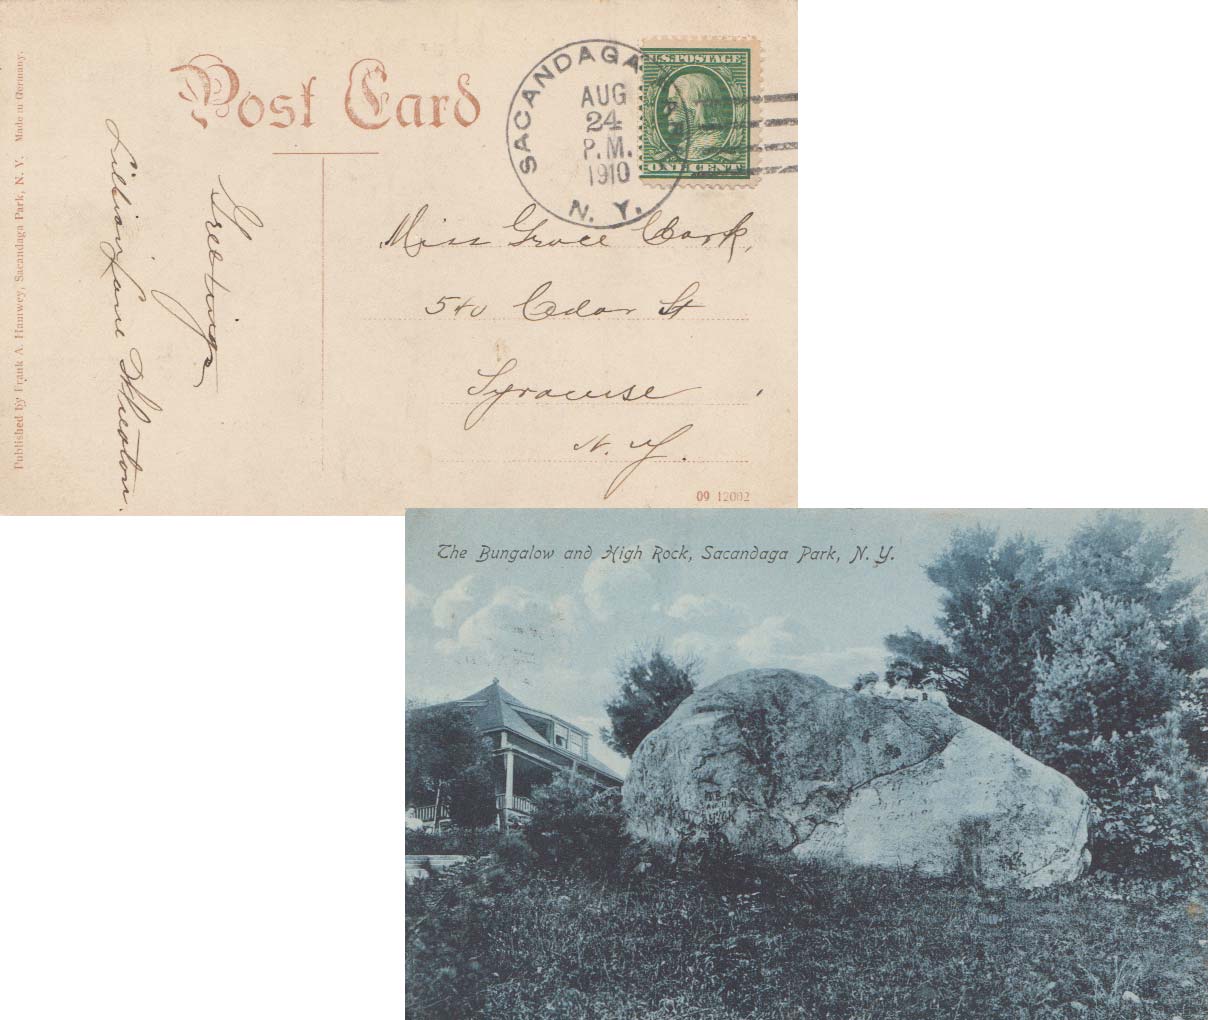 Post Card
SACANDAGA PARK
AUG
24
P.M.
1910
N. Y.
U.S. POSTAGE
ONE CENT
Published by Frank A. Hamwey, Sacandaga Park, N. Y. Made in Germany.
Greetings
Lillian Jane Wheaton.
Miss Grace Cook,
540 Cedar St
Syracuse,
N. Y.
09 12002
The Bungalow and High Rock, Sacandaga Park, N. Y.